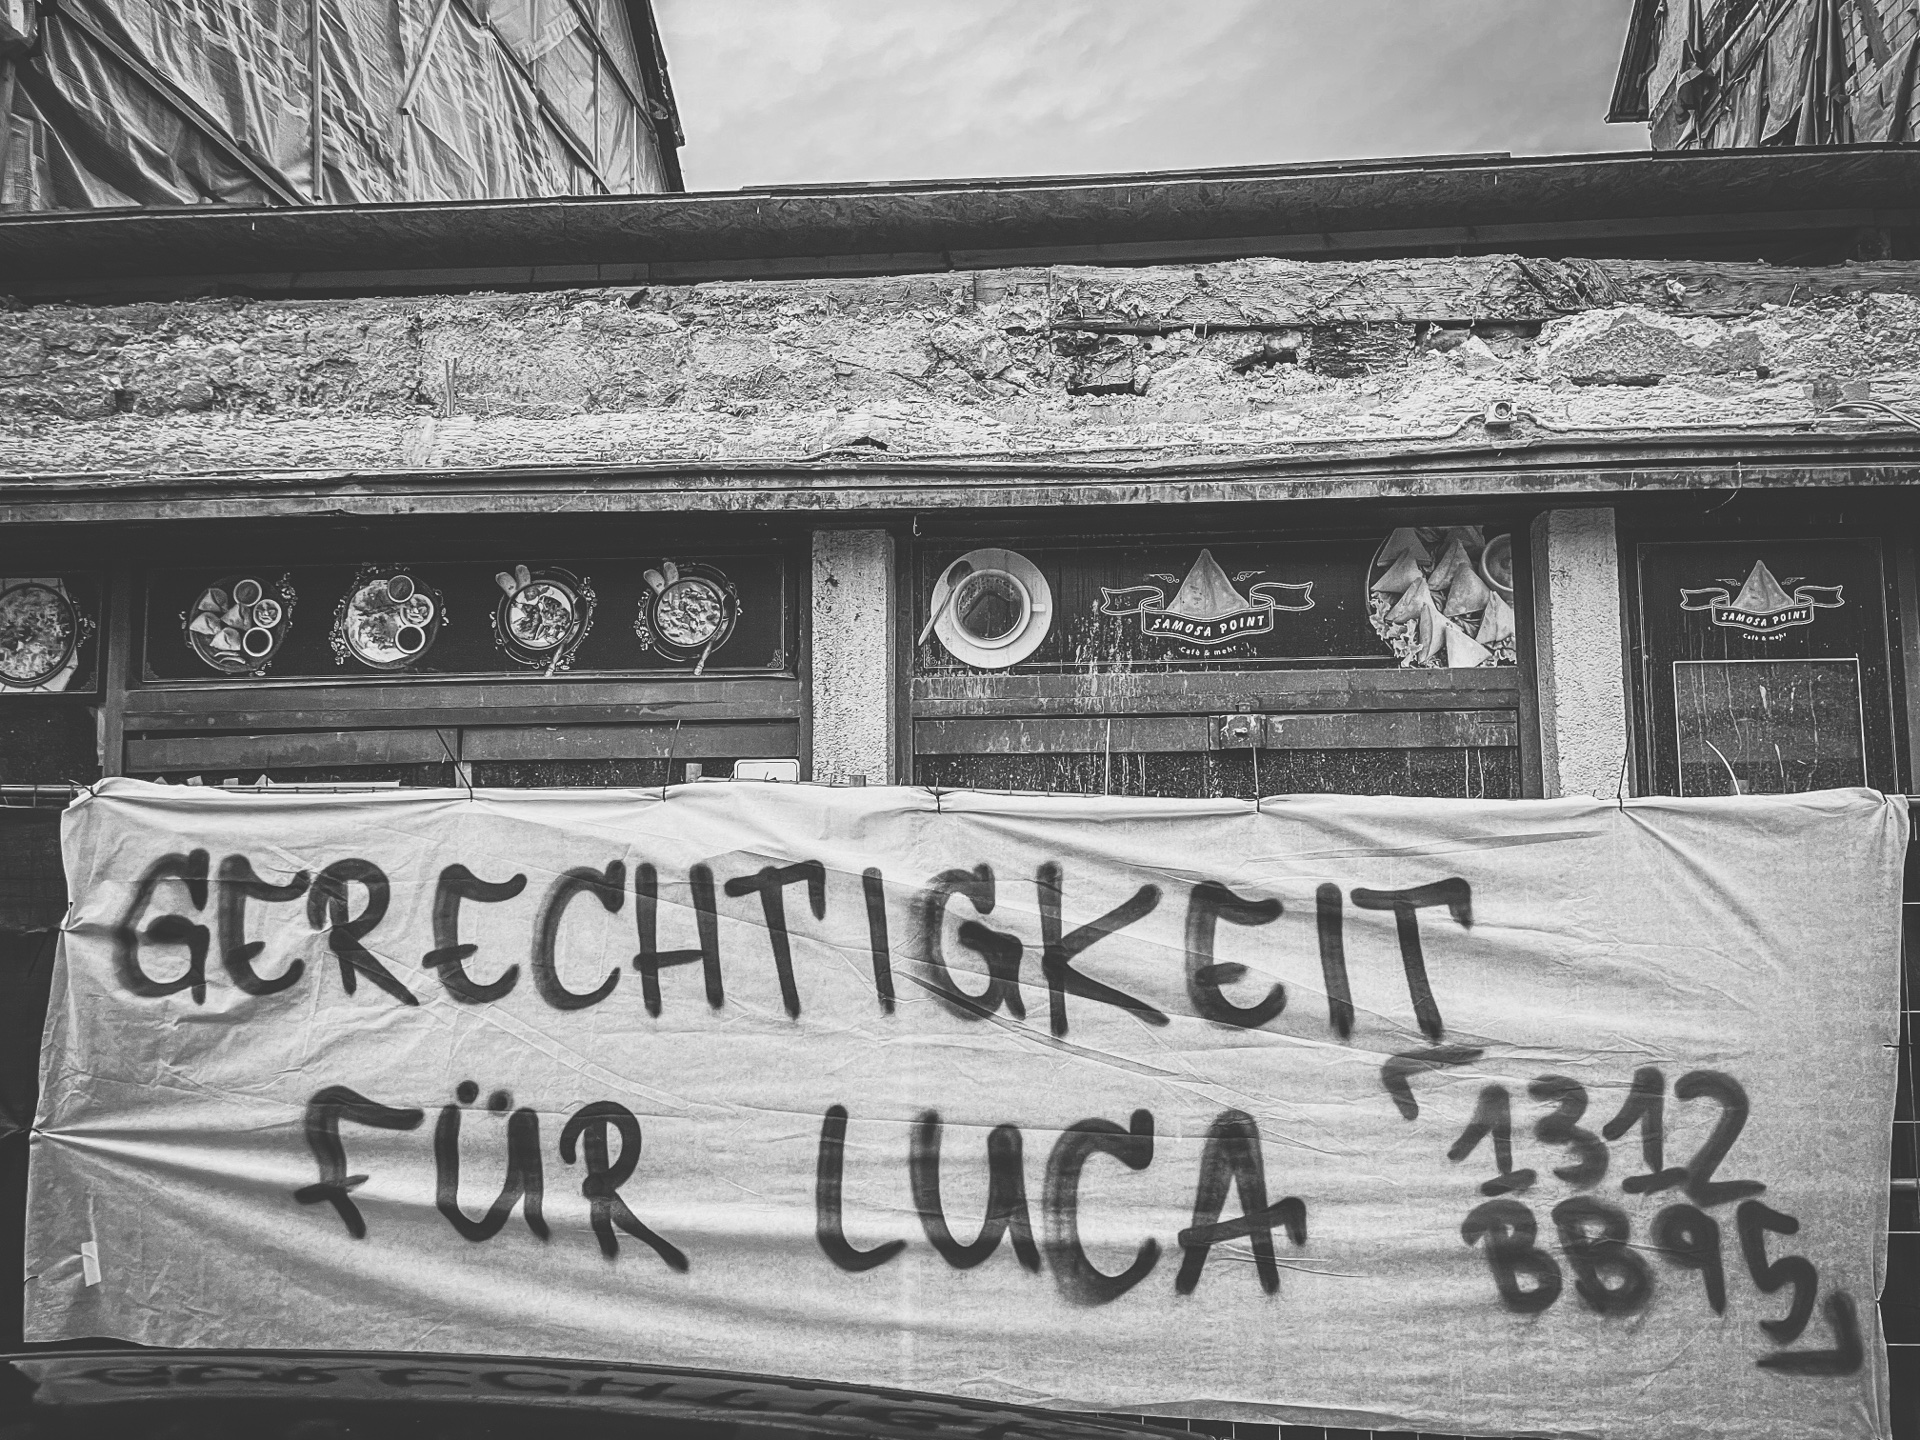 SAMOSA POINT
Café & mehr
SAMOSA POINT
Café & mehr
GERECHTIGKEIT
FÜR LUCA
1312
BB95